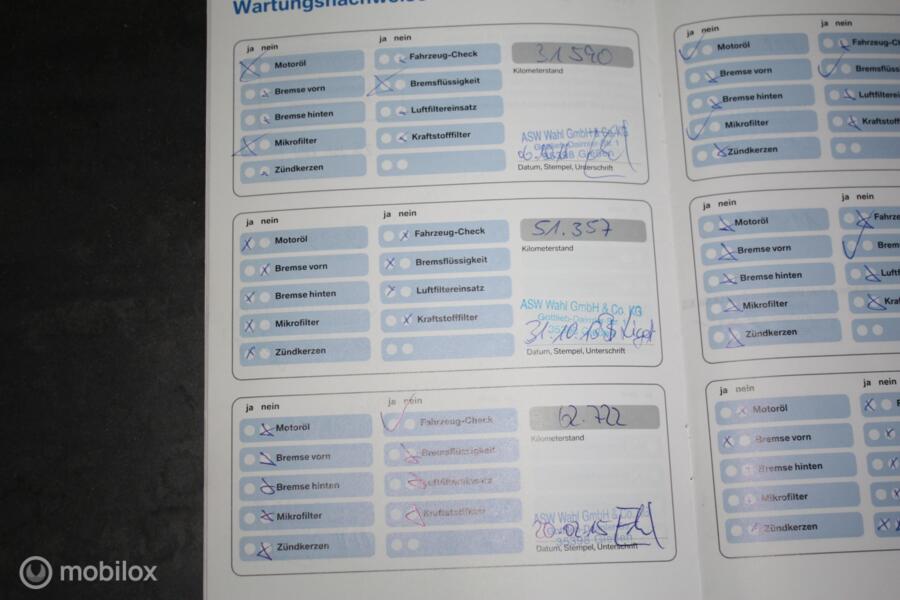 Wartungsnachweise
ja nein
ja nein
Motoröl
Bremse vorn
Bremse hinten
Mikrofilter
Zündkerzen
Fahrzeug-Check
Bremsflüssigkeit
Luftfiltereinsatz
Kraftstofffilter
31.590
Kilometerstand
ASW Wahl GmbH & Co. KG
Datum, Stempel, Unterschrift
ja nein
ja nein
Motoröl
Bremse vorn
Bremse hinten
Mikrofilter
Zündkerzen
Fahrzeug-Check
Bremsflüssigkeit
Luftfiltereinsatz
Kraftstofffilter
51.357
Kilometerstand
ASW Wahl GmbH & Co. KG
31.10.13
Datum, Stempel, Unterschrift
ja nein
ja nein
Motoröl
Bremse vorn
Bremse hinten
Mikrofilter
Zündkerzen
Fahrzeug-Check
Bremsflüssigkeit
Luftfiltereinsatz
Kraftstofffilter
62.722
Kilometerstand
ASW Wahl GmbH & Co.
20.02.15
35398 Gießen
Datum, Stempel, Unterschrift
ja nein
ja nein
Motoröl
Bremse vorn
Bremse hinten
Mikrofilter
Zündkerzen
Fahrzeug-C
Bremsflüss
Luftfilterein
Kraftstofff
ja nein
ja nein
Motoröl
Bremse vorn
Bremse hinten
Mikrofilter
Zündkerzen
Fahrze
Brems
Luftf
Kraf
ja nein
ja nein
Motoröl
Bremse vorn
Bremse hinten
Mikrofilter
Zündkerzen
mobilox